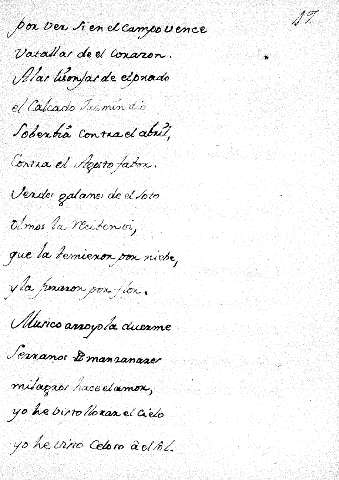 17.
por ver si en el campo vence
vatallas de el corazon.
A las lisonjas de el prado
el calçado
soberbia contra el abril,
contra el Agosto fabor.
Verdes galanes de el soto
olmos la
que la temieron por niebe,
y la por flor.
Musico arroyo la duerme
Serranos manzanares
milagros hace el amor,
yo he visto llorar el Cielo
yo he visto Celoso a el sol.